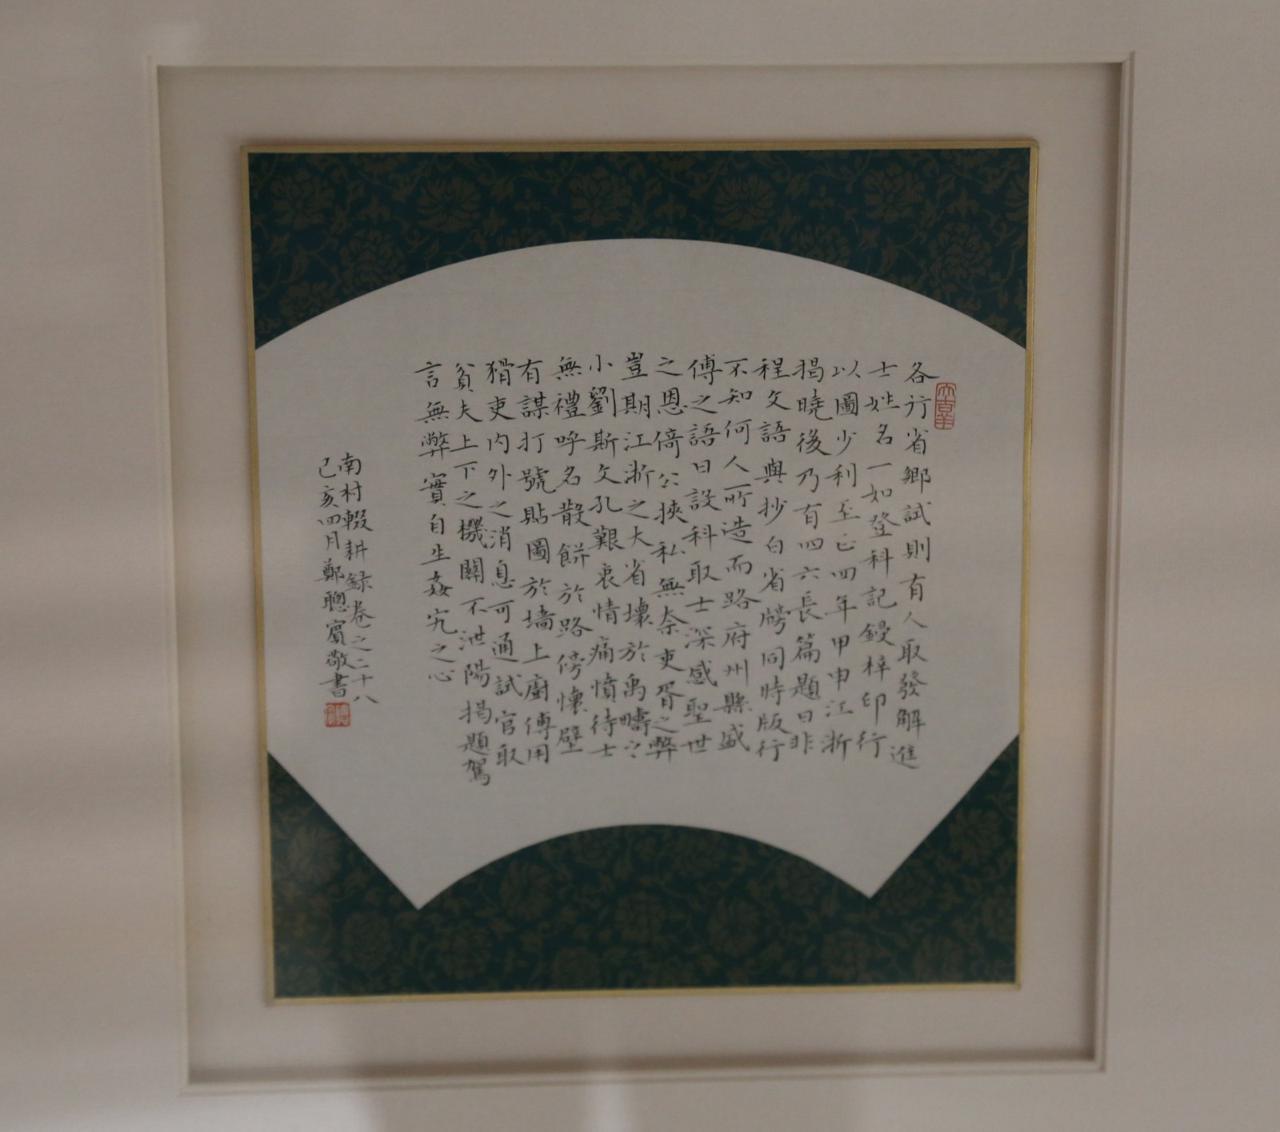 各行省鄉試則有人取發解進
士姓名一如登科記鋟梓印行
以圖少利至正四年甲申江浙
揭曉後乃有四六長篇題曰非
程文語與抄白省牓同時版行
不知何人所造而路府州縣盛
傳之語曰設科取士深感聖世
之恩倚公挾私無奈吏胥之弊
豈期江浙之大省壞於禹疇之
小劉斯文孔艱衷情痛憤待士
無禮呼名散餅於路傍懷壁
有謀打號貼圖於墻上廚傳用
猾吏內外之消息可通試官取
貧夫上下之機關不泄陽揭題駕
言無弊實自生姦宄之心
南村輟耕錄卷之二十八
己亥四月鄭聰賓敬書